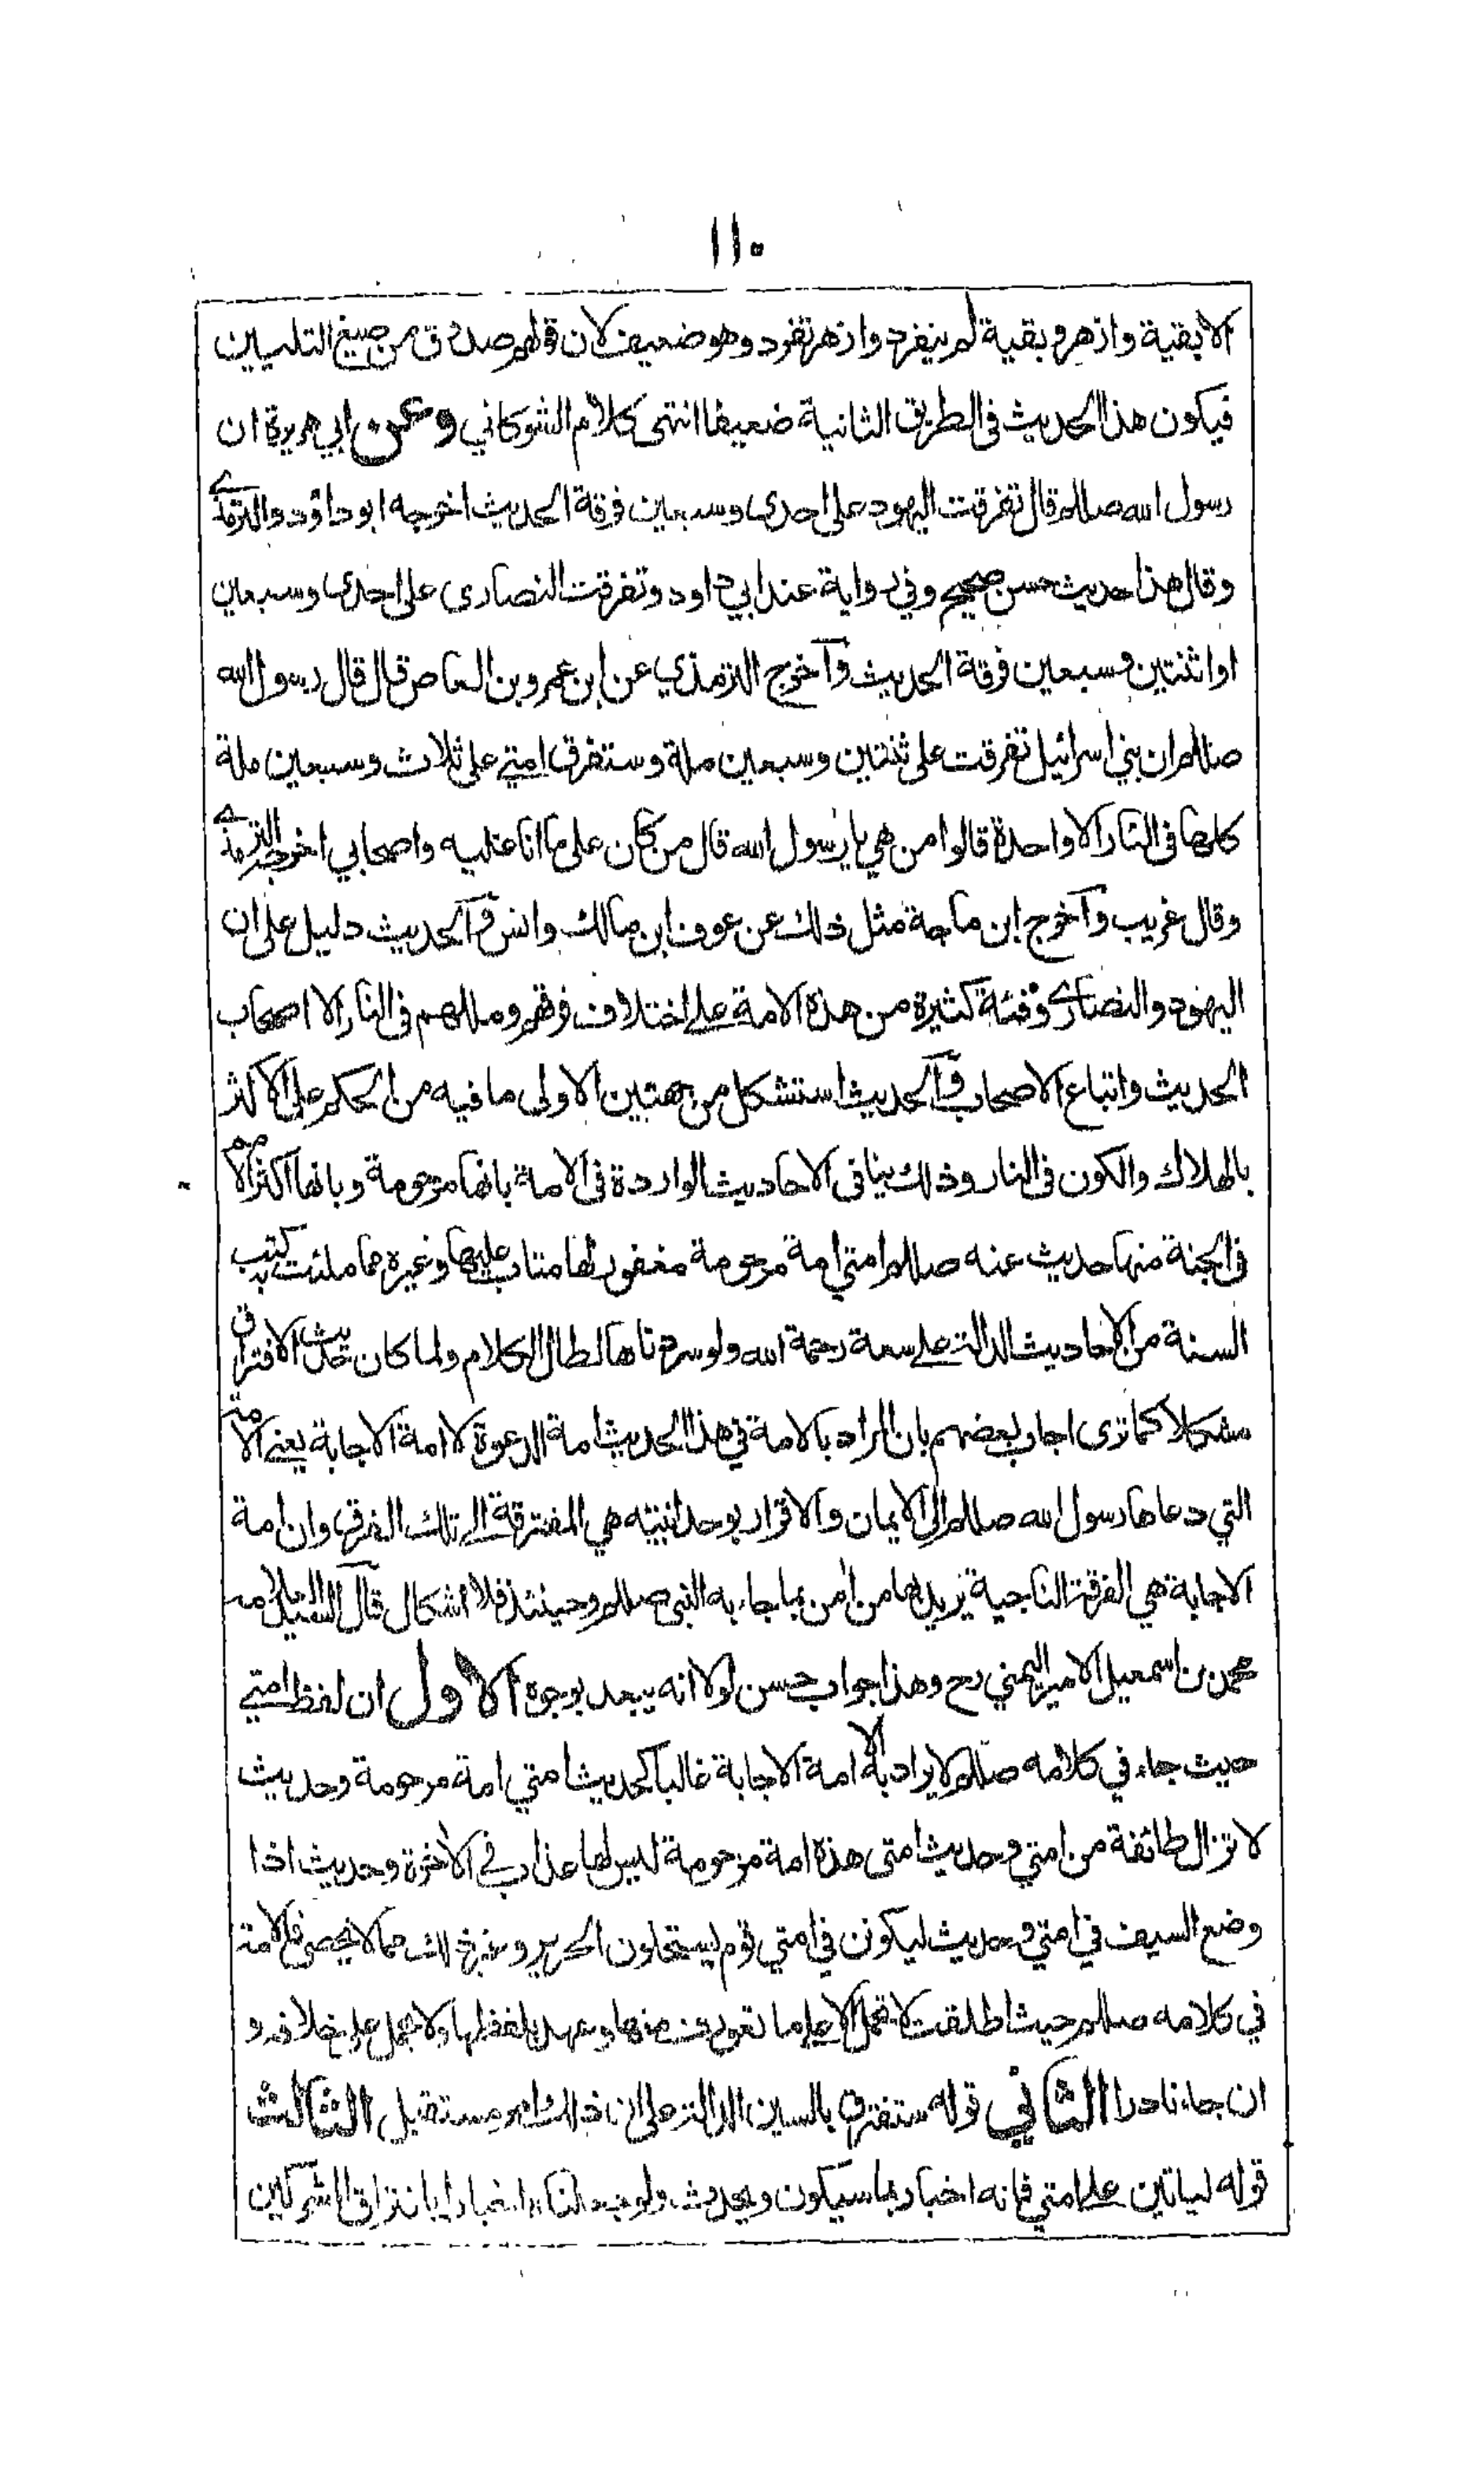 ١١٠
الا بقية وازهر وبقية لم ينفرد وازهر تفرد وهو ضعيف لان قولهم صدوق من صيغ التليين
فيكون هذا الحديث في الطريق الثانية ضعيفا انتهى كلام الشوكاني وعن ابي هريرة ان
رسول الله صللم قال تفرقت اليهود على احدى وسبعين فرقة الحديث اخرجه ابو داؤد والترمذي
وقال هذا حديث حسن صحيح وفي رواية عند ابي داود وتفرقت النصارى على احدى وسبعين
او اثنتين وسبعين فرقة الحديث وآخرج الترمذي عن ابن عمرو بن العاص قال قال رسول الله
صللم ان بني اسرائيل تفرقت على ثنتين وسبعين ملة وستفرق امتي على ثلاث وسبعين ملة
كلها في النار الا واحدة قالوا من هي يا رسول الله قال من كان على ما انا عليه واصحابي اخرجه الترمذي
وقال غريب وآخرج ابن ماجة مثل ذلك عن عوف ابن مالك وانس وفي الحديث دليل على ان
اليهود والنصارى وفئة كثيرة من هذه الامة على اختلاف فرقهم ومللهم في النار الا اصحاب
الحديث واتباع الاصحاب وفي الحديث استشكل من جهتين الاولى ما فيه من الحكم على الاكثر
بالهلاك والكون في النار وذلك ينافي الاحاديث الواردة في الامة بانها مرحومة وبانها اكثر الامم
في الجنة منها حديث عنه صللم امتي امة مرحومة مغفور لها متاب عليها وغيره مما ملئت به كتب
السنة من الاحاديث الدالة على سعة رحمة الله ولو سردناها لطال الكلام ولما كان حديث الافتراق
مشكلا كما ترى اجاب بعضهم بان المراد بالامة في هذا الحديث امة الدعوة لا امة الاجابة يعني الامة
التي دعاها رسول الله صللم الى الايمان والاقرار بوحدانيته هي المفترقة الى تلك الفرق وان امة
الاجابة هي الفرقة الناجية يريد بها من امن بما جاء به النبي صللم وحينئذ فلا اشكال قآل السيد العلامة
محمد بن اسمعيل الامير اليمني رح وهذا جواب حسن لولا انه يبعد بوجوه الاول ان لفظ امتي
حيث جاء في كلامه صللم لا يراد به الا امة الاجابة غالبا كحديث امتي امة مرحومة وحديث
لا تزال طائفة من امتي وحديث امتى هذه امة مرحومة ليس لها عذاب في الآخرة وحديث اذا
وضع السيف في امتي وحديث ليكونن في امتي قوم يستحلون الحرير وغير ذلك مما لا يحصى فالامة
في كلامه صللم حيث اطلقت لا تحمل الا على ما تعورف منها وعهد بلفظها ولا تحمل على خلافه و
ان جاء نادرا الثاني قوله ستفترق بالسين الدالة على ان ذلك امر مستقبل الثالث
قوله لياتين على امتي فانه اخبار بما سيكون ويحدث ولو جعلناه اخبارا بافتراق المشركين